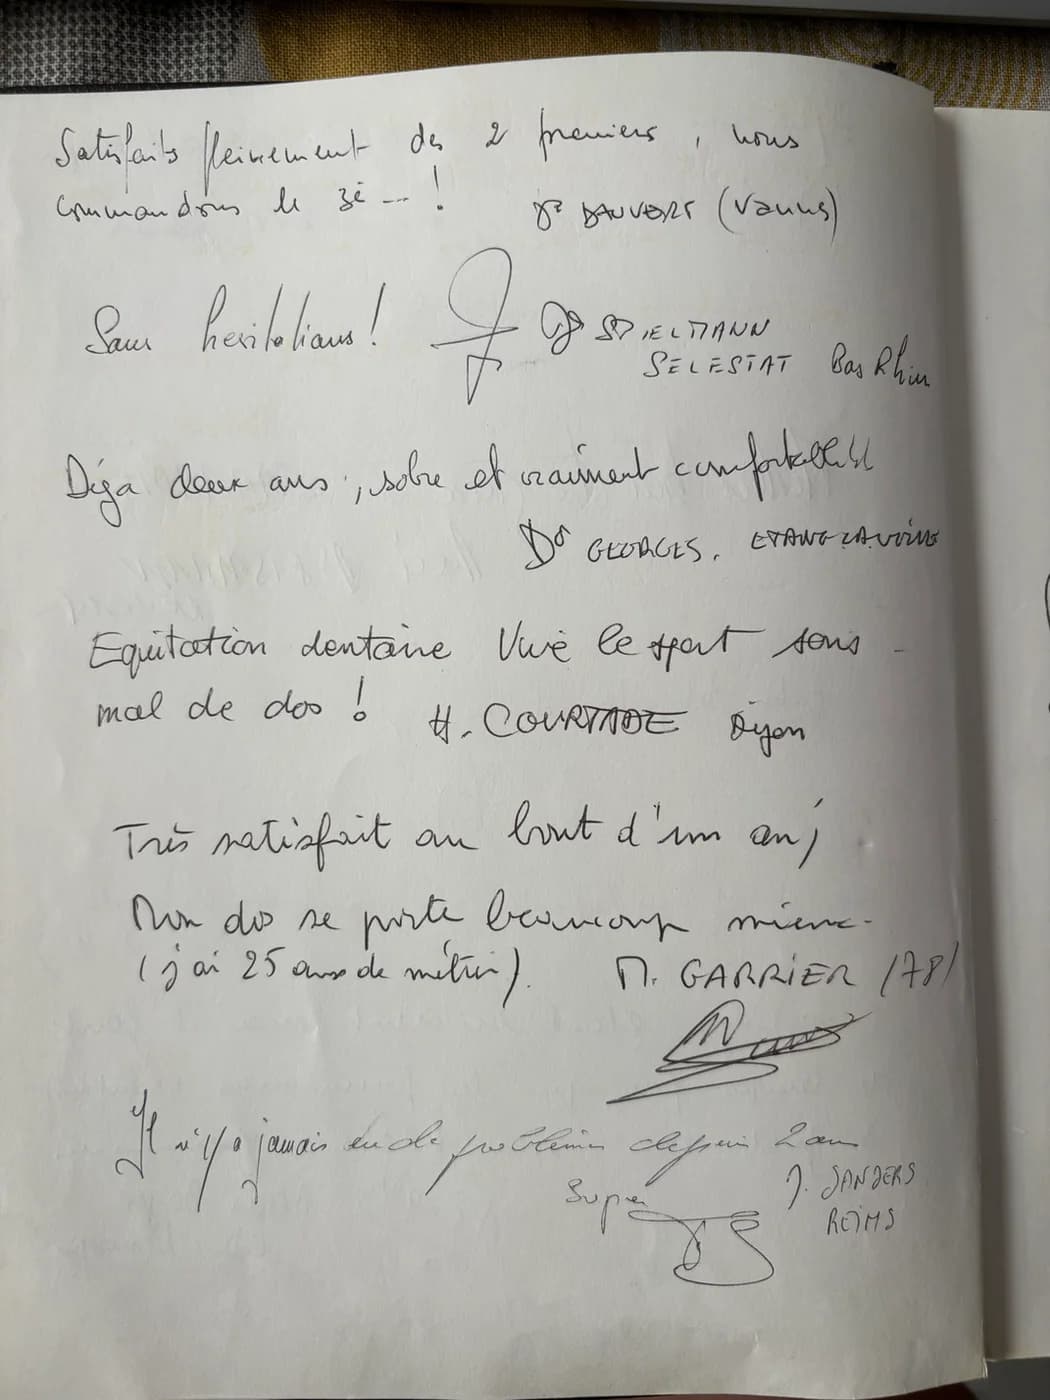 Satisfaits pleinement des 2 premiers, nous
commandons le 3è ... !
Dr DAUVERT (Vannes)
Sans hesitations!
Dr SPIELMANN
SELESTAT Bas Rhin
Déja deux ans, sobre et vraiment comfortable!!
Dr GEORGES. ETANG LA VILLE
Equitation dentaire Vive le sport sans
mal de dos !
H. COURTADE Dijon
Très satisfait au bout d'un an;
Mon dos se porte beaucoup mieux.
(j'ai 25 ans de métier).
M. GARRIER (78)
Il n'y a jamais eu de problèmes depuis 2 ans
Super
J. SANDERS
REIMS